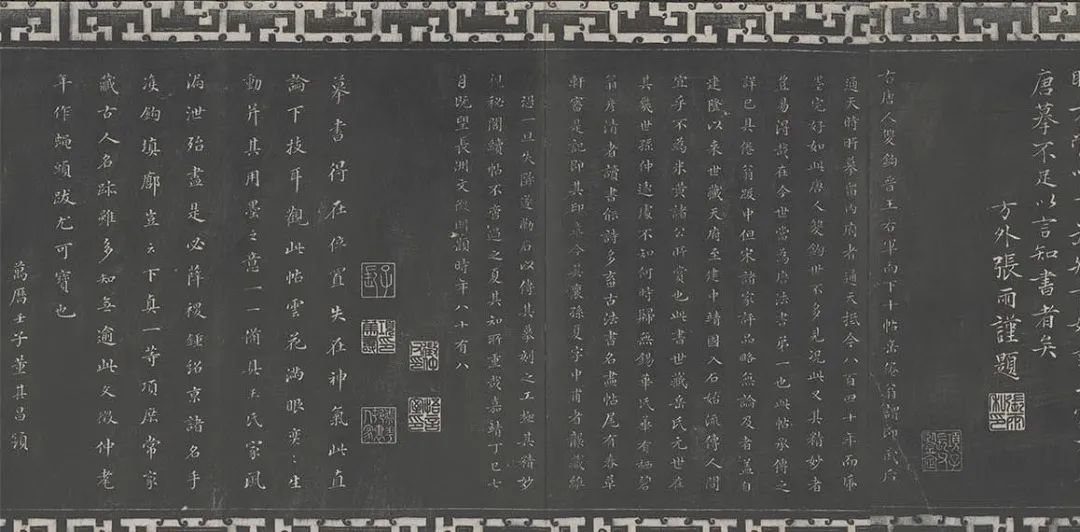 唐摹不足以言知書者矣
方外張雨謹題
右唐人雙鉤晉王右軍而下十帖岳倦翁謂即武后
通天時所摹留內府者通天抵今八百四十年而紙
墨完好如此唐人雙鉤世不多見況此又其精妙者
豈易得哉在今世當為唐法書第一也此帖承傳之
詳已具倦翁跋中但宋諸家評品略無論及者蓋自
建隆以來世藏天府至建中靖國入石始流傳人間
宜乎不為米黃諸公所賞也此書世藏岳氏元世在
其幾世孫仲遠處不知何時歸無錫華氏華有栖碧
翁彥清者讀書能詩多畜古法書名畫帖尾有春草
軒審定記即其印 今其裔孫夏字中甫者襲藏維
謹一旦失墜遂勒石以傳其摹刻之工極其精妙
視秘閣續帖不啻過之夏其知所重哉嘉靖丁巳七
月既望長洲文徵明題時年八十有八
摹書得在位置失在神氣此直
論下技耳觀此帖雲花滿眼奕〻生
動并其用墨之意一一備具王氏家風
漏泄殆盡是必薛稷鍾紹京諸名手
淮鉤填廓豈云下真一等項庶常家
藏古人名跡雖多知無逾此文徵仲老
年作蠅頭跋尤可寶也
萬曆壬子董其昌題